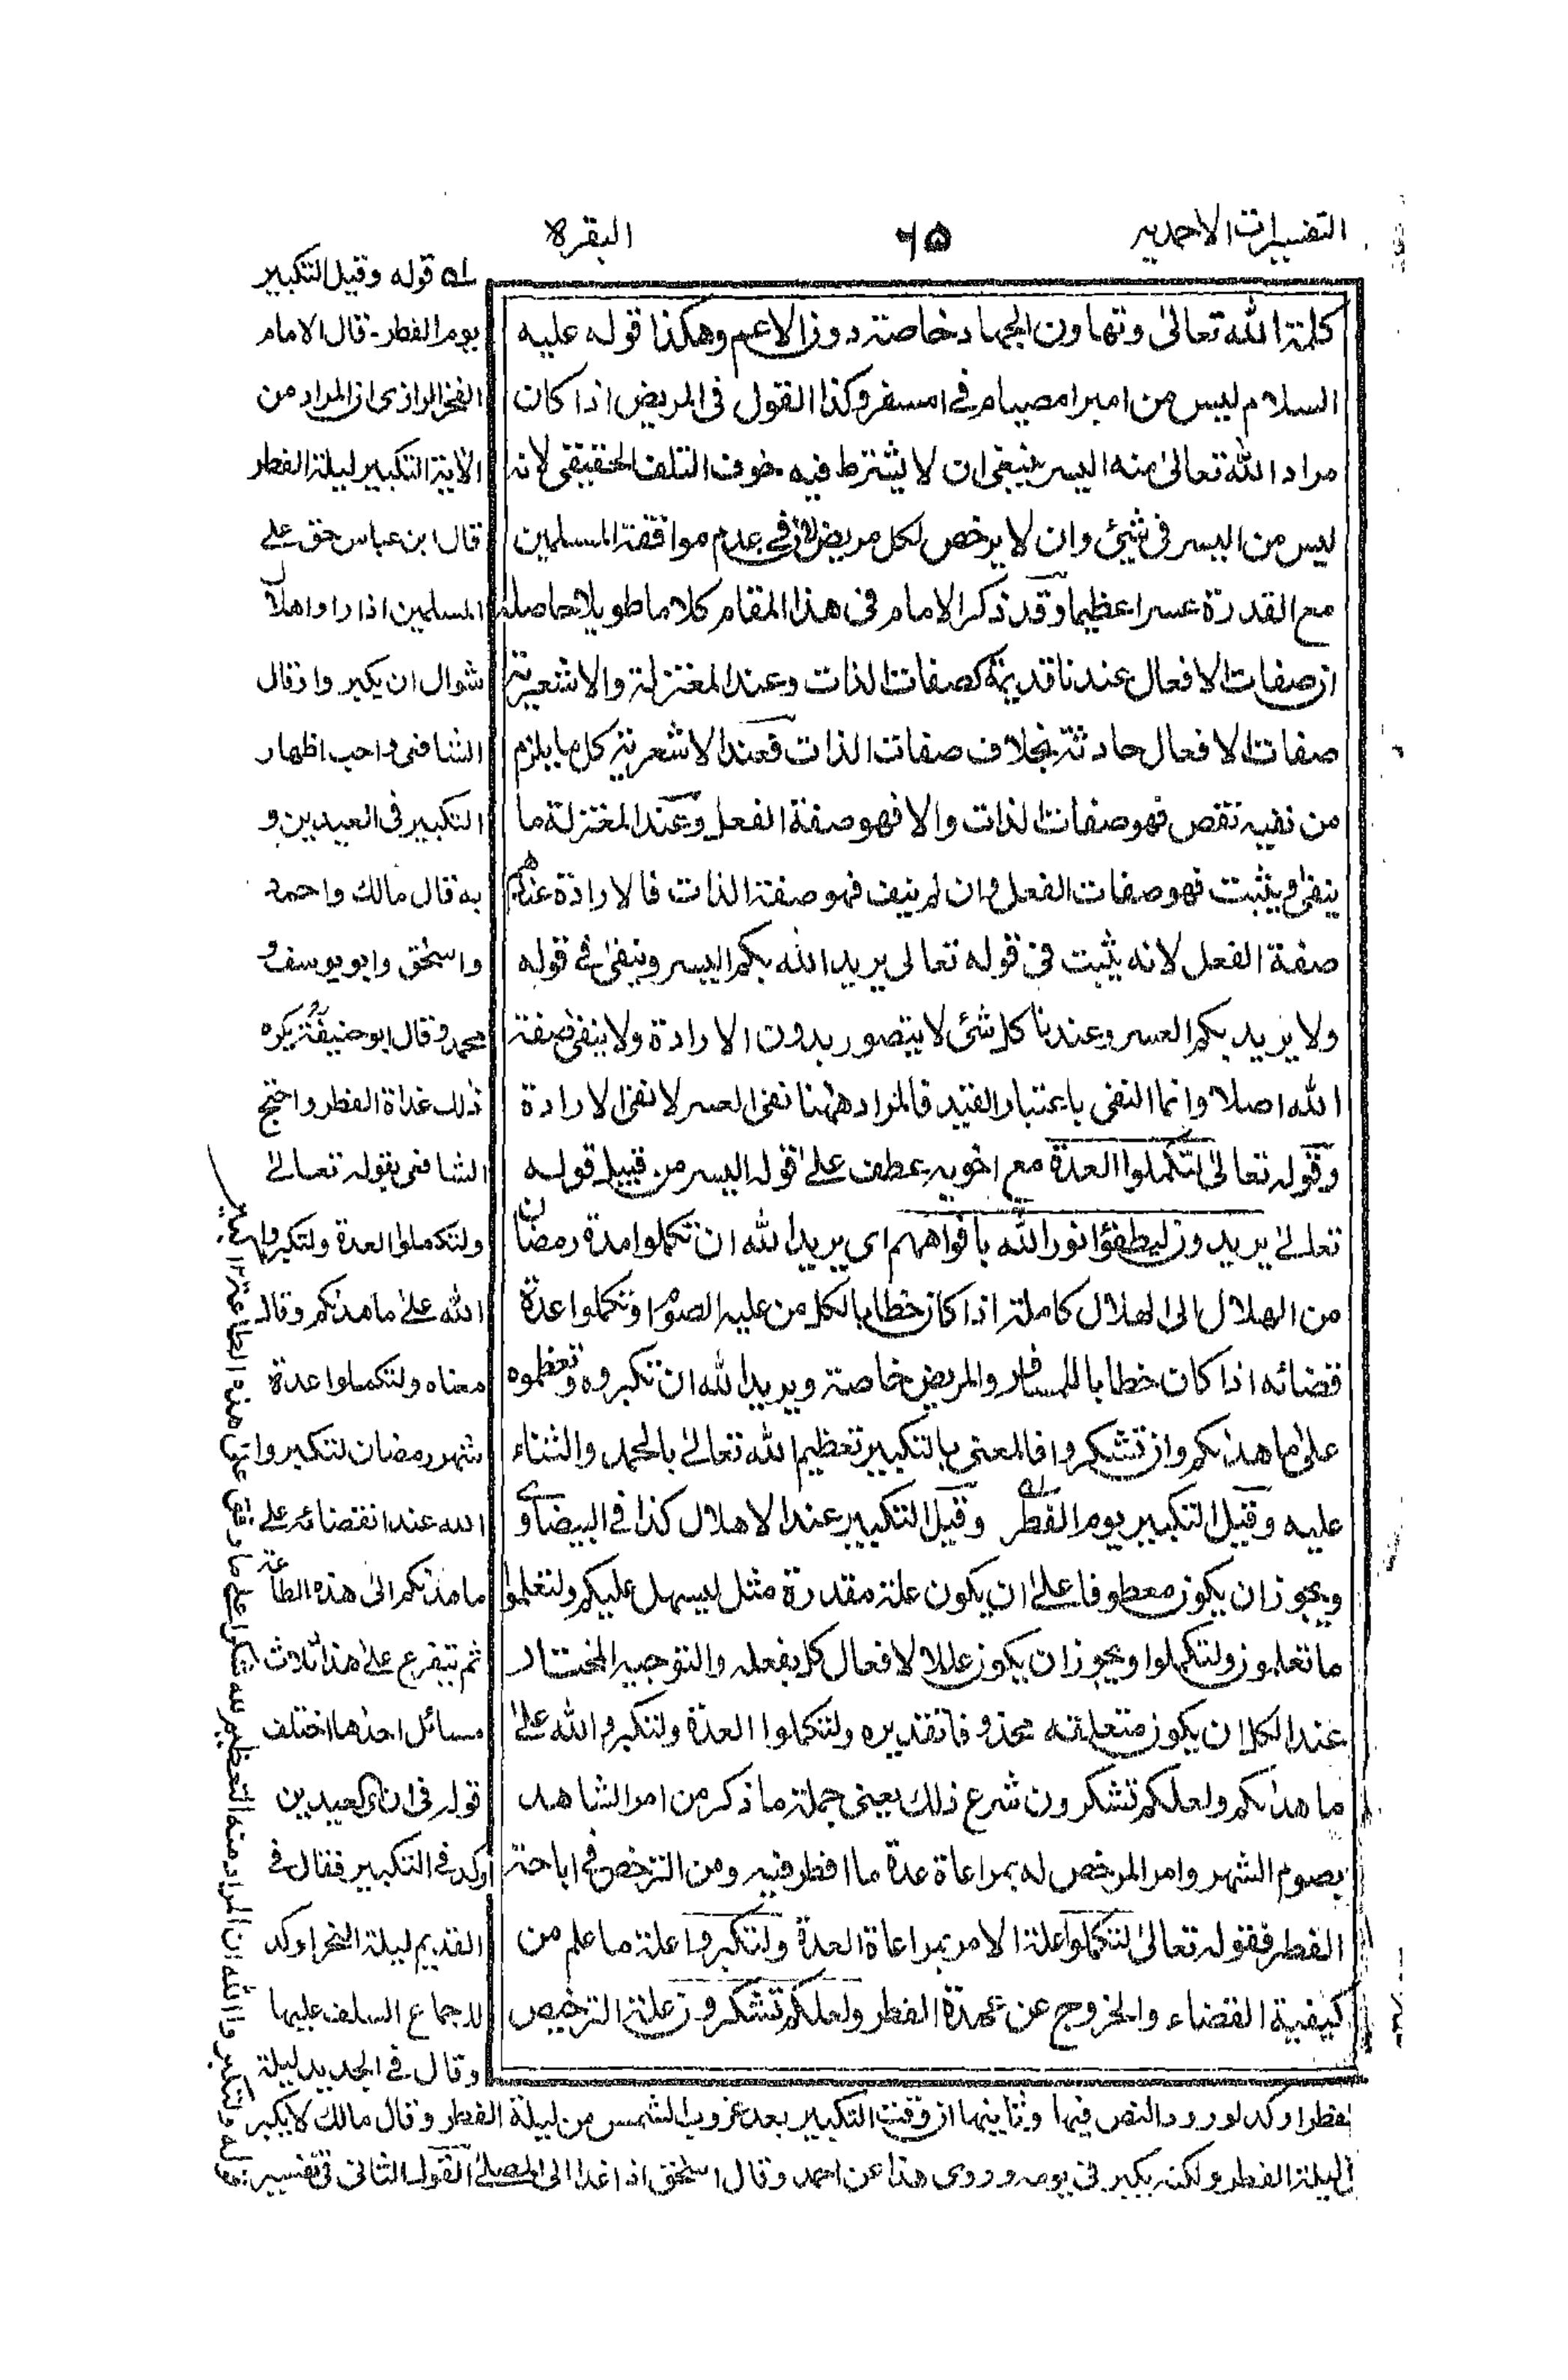 التفسيرات الاحمدية
٦٥
البقرة
كلمة الله تعالى وتهاون الجهاد خاصة دون الاعم وهكذا قوله عليه
السلام ليس من امبر امصيام في امسفر وكذا القول فى المريض اذا كان
مراد الله تعالىٰ منه اليسر ينبغى ان لا يشترط فيه خوف التلف الحقيقى لانه
ليس من اليسر فى شيئ وان لا يرخص لكل مريض لان فى عدم موافقة المسلمين
مع القدرة عسرا عظيما وقد ذكر الامام فى هذا المقام كلاما طويلا حاصله
ان صفات الافعال عندنا قديمة كصفات الذات وعند المعتزلة والاشعرية
صفات الافعال حادثة بخلاف صفات الذات فعند الاشعرية كل ما يلزم
من نفيه نقص فهو صفات الذات والا فهو صفة الفعل وعند المعتزلة ما
ينفىٰ ويثبت فهو صفات الفعل وان لم ينف فهو صفة الذات فالارادة عندهم
صفة الفعل لانه يثبت فى قوله تعالى يريد الله بكم اليسر وينفىٰ فى قوله
ولا يريد بكم العسر وعندنا كل شئ لا يتصور بدون الارادة ولا ينفى صفة
الله اصلا وانما النفى باعتبار القيد فالمراد ههنا نفى العسر لا نفى الارادة
وقوله تعالىٰ لتكملوا العدة مع اخويه عطف علىٰ قوله اليسر من قبيل قوله
تعالىٰ يريدون ليطفؤا نور الله بافواههم اى يريد الله ان تكملوا مدة رمضان
من الهلال الى الهلال كاملة اذا كان خطابا لكل من عليه الصوم او تكملوا عدة
قضائه اذا كان خطابا للمسافر والمريض خاصة ويريد الله ان تكبروه وتعظموه
علىٰ ما هدٰىكم وان تشكروا فالمعنى بالتكبير تعظيم الله تعالىٰ بالحمد والثناء
عليه وقيل التكبير يوم الفطر وقيل التكبير عند الاهلال كذا فى البيضاوى
ويجوز ان يكون معطوفا علىٰ ان يكون علة مقدرة مثل ليسهل عليكم ولتعلموا
ما تعلمون ولتكملوا ويجوز ان يكون عللا لافعال كل بفعله والتوجيه المختار
عند الكل ان يكون متعلقه محذوفا تقديره ولتكملوا العدة ولتكبروا الله علىٰ
ما هدٰىكم ولعلكم تشكرون شرع ذلك يعنى جملة ما ذكر من امر الشاهد
بصوم الشهر وامر المرخص له بمراعاة عدة ما افطر فيه ومن الترخص فى اباحة
الفطر فقوله تعالىٰ لتكملوا علة الامر بمراعاة العدة ولتكبروا علة ما علم من
كيفية القضاء والخروج عن عهدة الفطر ولعلكم تشكرون علة الترخيص
له قوله وقيل التكبير
يوم الفطر - قال الامام
الفخر الرازى ان المراد من
الآية التكبير ليلة الفطر
قال ابن عباس حق على
المسلمين اذا راوا هلال
شوال ان يكبروا وقال
الشافعى واحب اظهار
التكبير فى العيدين و
به قال مالك واحمد
واسحٰق وابو يوسف و
محمد وقال ابو حنيفة يكره
ذلك غداة الفطر واحتج
الشافعى بقوله تعالىٰ
ولتكملوا العدة ولتكبروا
الله علىٰ ما هدٰىكم وقال
معناه ولتكملوا عدة
شهر رمضان لتكبروا
الله عند انقضائه على
ما هدٰىكم الىٰ هذه الطاعة
ثم يتفرع علىٰ هذا ثلاث
مسائل احدها اختلف
قوله فى ان اى العيدين
اوكد فى التكبير فقال فى
القديم ليلة النحر اوكد
لاجماع السلف عليها
وقال فى الجديد ليلة
الفطر اوكد لورود النص فيها وثانيها ان وقت التكبير بعد غروب الشمس من ليلة الفطر وقال مالك لا يكبر
فى ليلة الفطر ولكنه يكبر فى يومه وروى هذا عن احمد وقال اسحٰق اذا غدا الى المصلىٰ القول الثانى فى تفسير
قوله ولتكبروا الله ان المراد منه التعظيم لله شكرا على ما وفق على هذه الطاعة ١٢